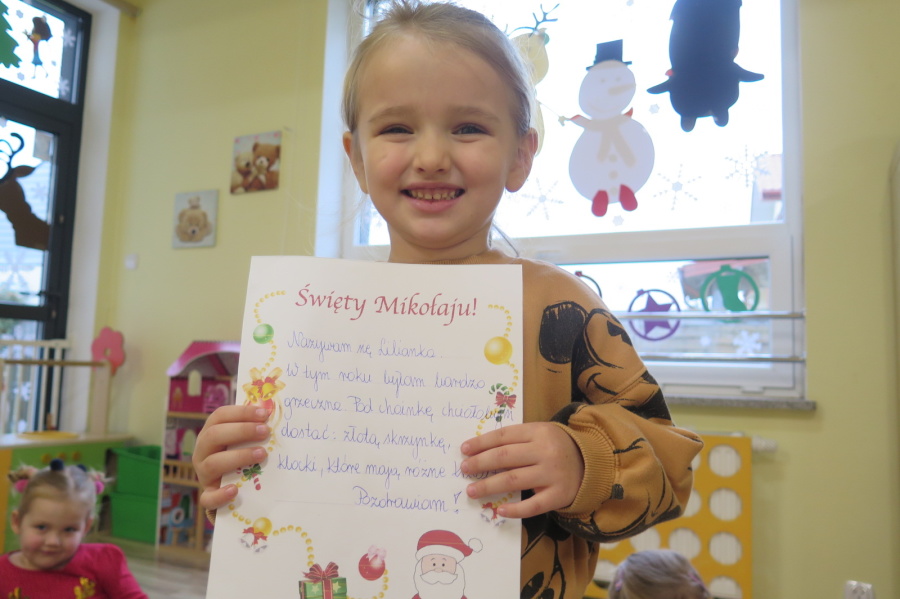 Święty Mikołaju!
Nazywam się Lilianka.
W tym roku byłam bardzo
grzeczna. Pod choinkę chciałabym
dostać: złotą skrzynkę,
klocki, które mają różne
Pozdrawiam!